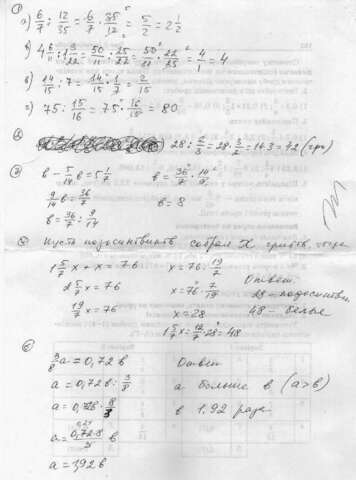 ①
а) 6/7 : 12/35 = 6/7 · 35/12 = 5/2 = 2 1/2
б) 4 6/11 : 1 3/22 = 50/11 : 25/22 = 50/11 · 22/25 = 4/1 = 4
в) 14/15 : 7 = 14/15 · 1/7 = 2/15
г) 75 : 15/16 = 75 · 16/15 = 80
28 : 2/3 = 28 · 3/2 = 14·3 = 42 (гри)
③
в - 5/14 в = 5 1/7
9/14 в = 36/7
в = 36/7 : 9/14
в = 36/7 · 14/9
в = 8
Пусть подъсиновиков собрал X грибов, тогда
1 5/7 x + x = 76
2 5/7 x = 76
19/7 x = 76
x = 76 : 19/7
x = 76 · 7/19
x = 28
1 5/7 x = 12/7 · 28 = 48
Ответ.
28 - подосиновик.
48 - белые
3/8 a = 0,72 в
a = 0,72 в : 3/8
a = 0,72 в · 8/3
a = 0,72·8/3 в
a = 1,92 в
Ответ
a больше в (a>в)
в 1.92 раза.